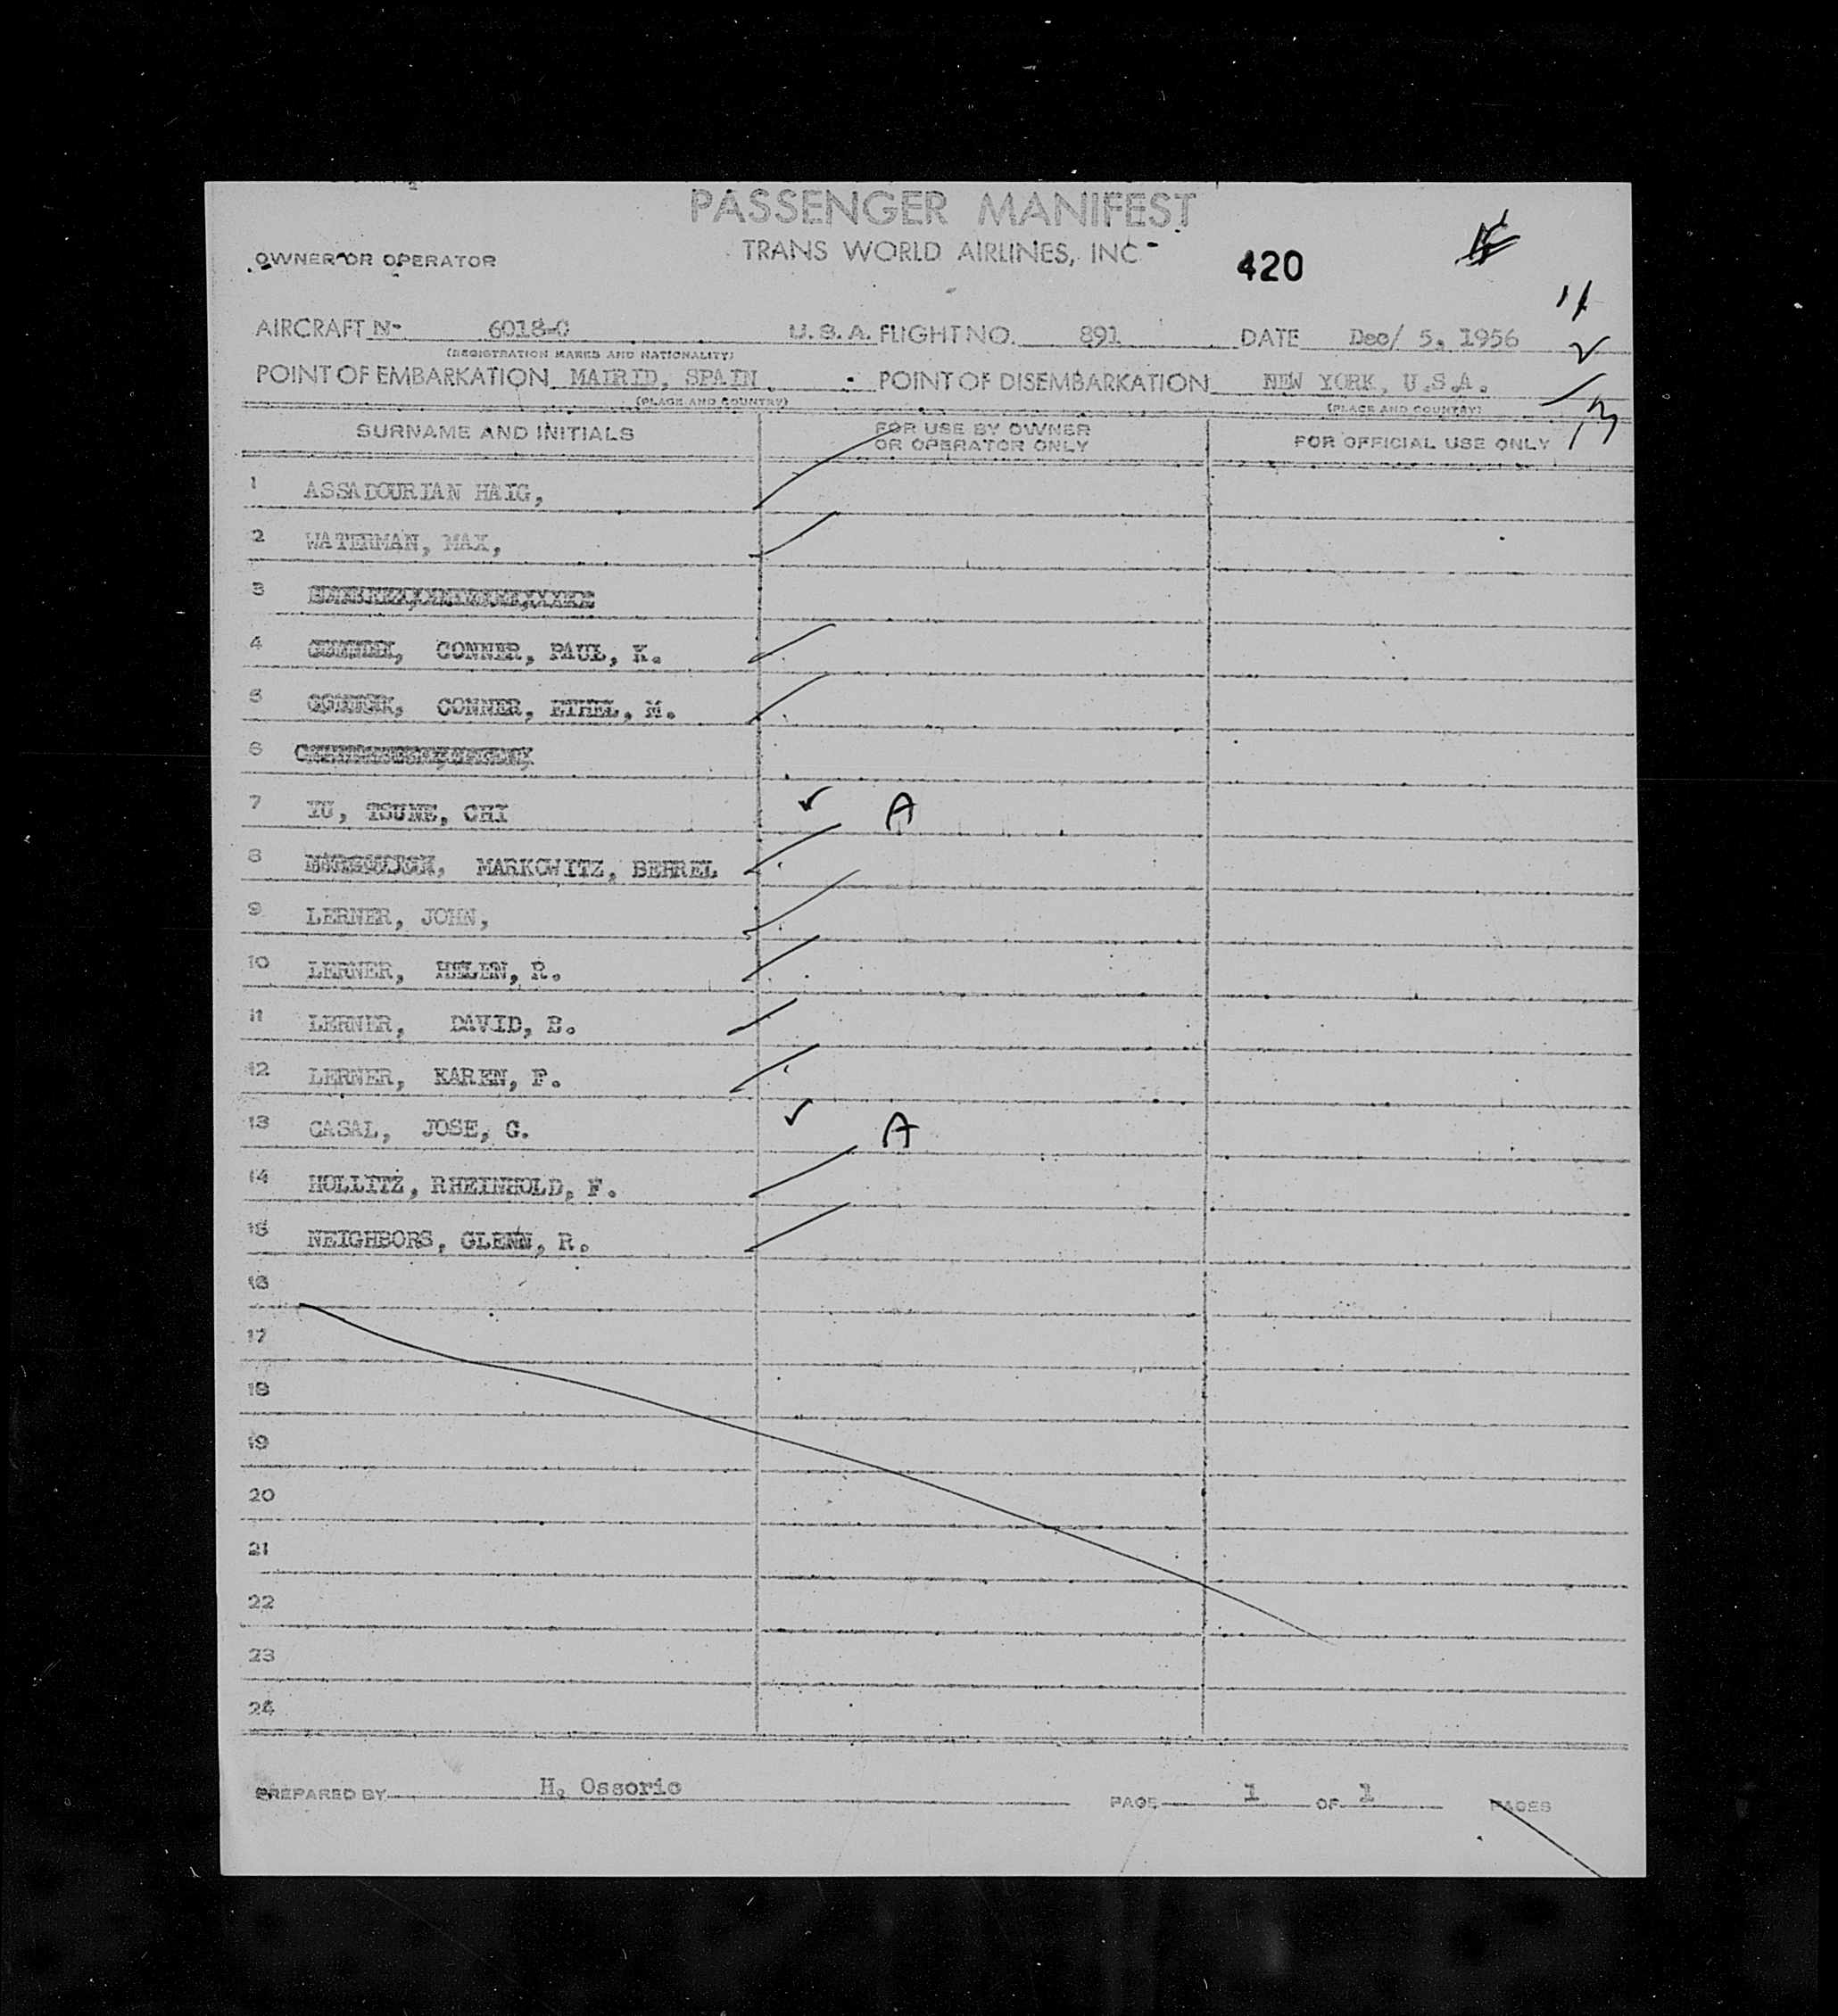 PASSENGER MANIFEST
OWNER OR OPERATOR TRANS WORLD AIRLINES, INC 420
11
AIRCRAFT N- 6018-C U.S.A. FLIGHT NO. 891 DATE Dec/ 5, 1956 2
(REGISTRATION MARKS AND NATIONALITY)
POINT OF EMBARKATION MAIRID, SPAIN POINT OF DISEMBARKATION NEW YORK, U.S.A.
(PLACE AND COUNTRY) (PLACE AND COUNTRY) 13
SURNAME AND INITIALS FOR USE BY OWNER OR OPERATOR ONLY FOR OFFICIAL USE ONLY
1 ASSADOURIAN HAIG,
2 WATERMAN, MAX,
3
4 CONNER, PAUL, K.
5 CONNER, ETHEL, M.
6
7 YU, TSUNE, CHI ✓ A
8 MARKOWITZ, BEHREL
9 LERNER, JOHN,
10 LERNER, HELEN, R.
11 LERNER, DAVID, B.
12 LERNER, KAREN, F.
13 CASAL, JOSE, G. ✓ A
14 HOLLITZ, RHEINHOLD, F.
15 NEIGHBORS, GLENN, R.
16
17
18
19
20
21
22
23
24
PREPARED BY H. Ossorio PAGE 1 OF 1 PAGES